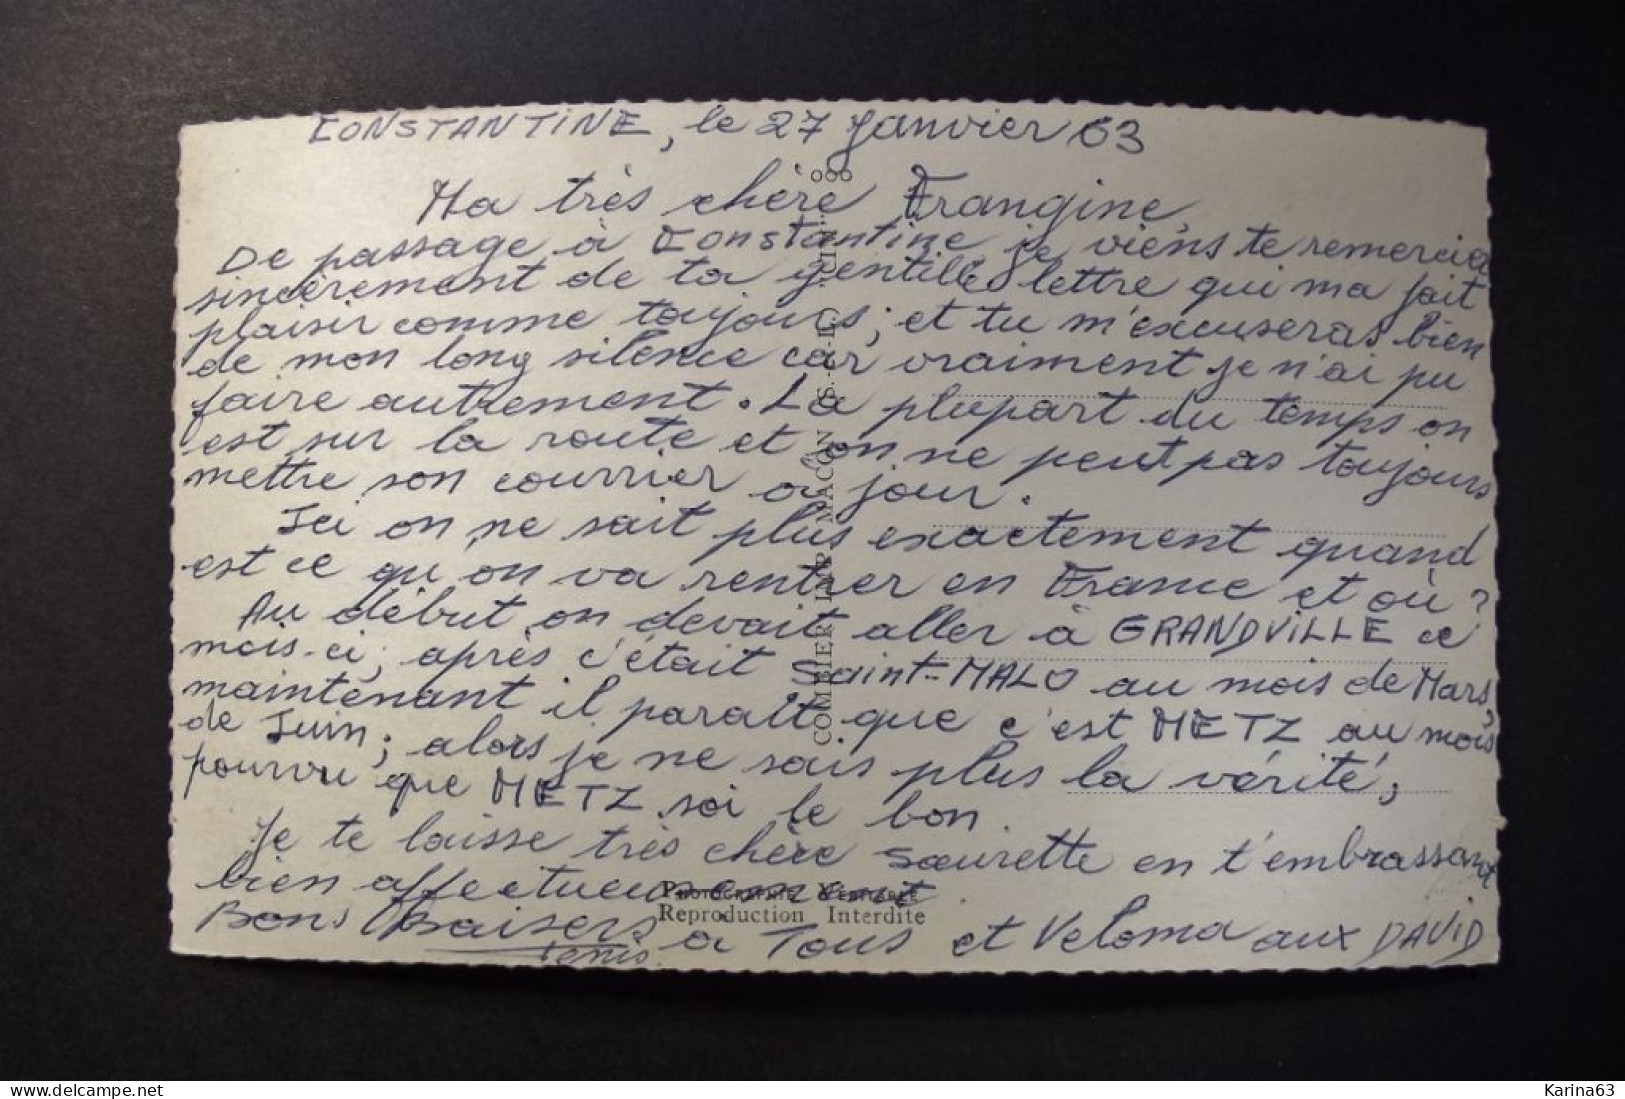 CONSTANTINE, le 27 Janvier 63
Ma très chère Frangine,
De passage à Constantine je viens te remercier
sincèrement de ta gentille lettre qui ma fait
plaisir comme toujours; et tu m'excuseras bien
de mon long silence car vraiment je n'ai pu
faire autrement. La plupart du temps on
est sur la route et on ne peut pas toujours
mettre son courrier a jour.
Ici on ne sait plus exactement quand
est ce qu'on va rentrer en France et où?
Au début on devait aller à GRANDVILLE ce
mois-ci; après c'était Saint-MALO au mois de Mars,
maintenant il paraît que c'est METZ au mois
de Juin; alors je ne sais plus la vérité;
pourvu que METZ soi le bon.
Je te laisse très chère Sœurette en t'embrassant
bien affectueusement
Bons Baisers a Tous et Veloma aux DAVID
COMBIER IMP. MACON
Reproduction Interdite
https://www.delcampe.net
Karina63